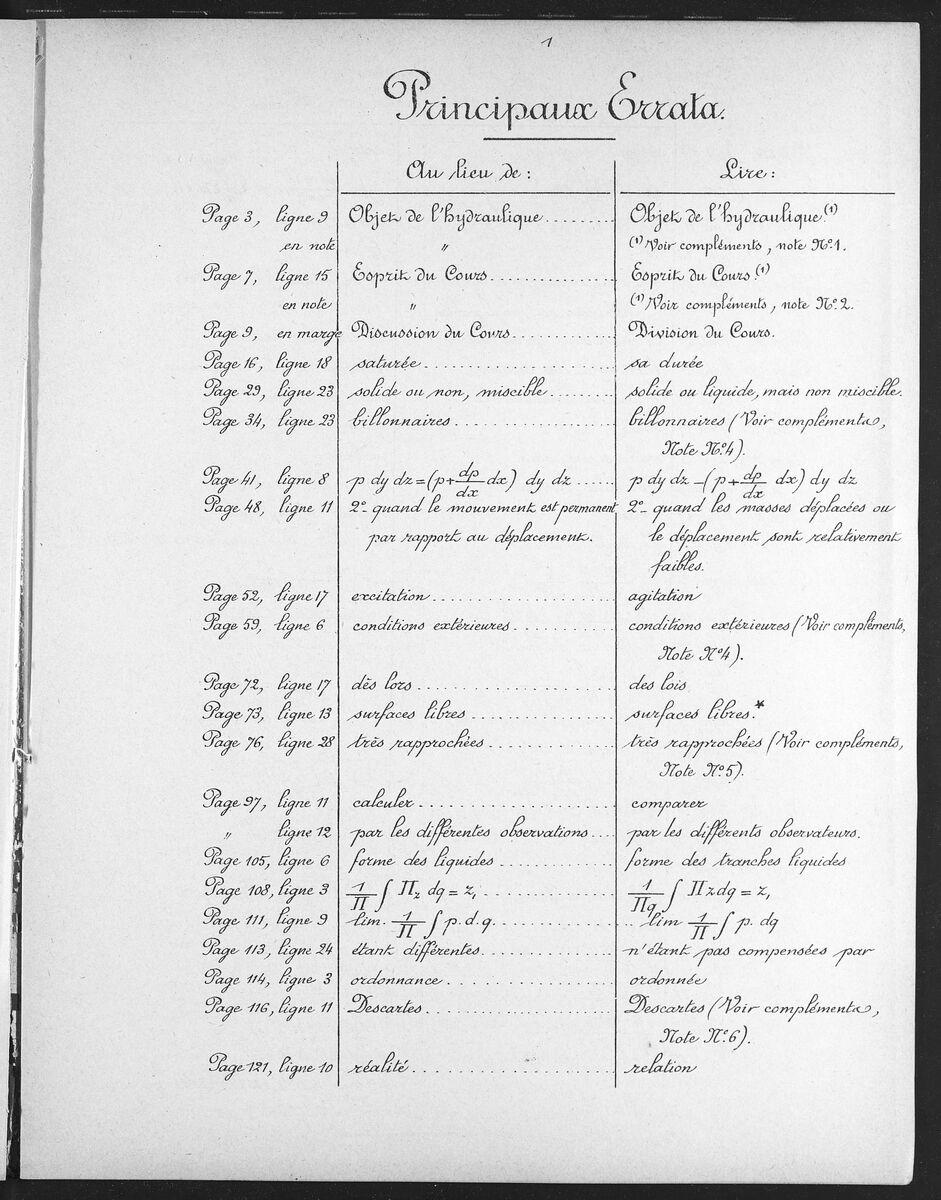 1
Principaux Errata.
Au lieu de : Lire :
Page 3, ligne 9 Objet de l'hydraulique......... Objet de l'hydraulique (1)
en note " (1) Voir compléments, note N°1.
Page 7, ligne 15 Esprit du Cours................ Esprit du Cours (1)
en note " (1) Voir compléments, note N°2.
Page 9, en marge Discussion du Cours............. Division du Cours.
Page 16, ligne 18 saturée........................ sa durée
Page 29, ligne 23 solide ou non, miscible........ solide ou liquide, mais non miscible.
Page 34, ligne 23 billonnaires.................... billonnaires (Voir compléments,
Note N°4).
Page 41, ligne 8 p dy dz = (p + dp/dx dx) dy dz...... p dy dz - (p + dp/dx dx) dy dz
Page 48, ligne 11 2°- quand le mouvement est permanent 2°- quand les masses déplacées ou
par rapport au déplacement. le déplacement sont relativement
faibles.
Page 52, ligne 17 excitation........................ agitation
Page 59, ligne 6 conditions extérieures............ conditions extérieures (Voir compléments,
Note N°4).
Page 72, ligne 17 dès lors......................... des lois
Page 73, ligne 13 surfaces libres.................. surfaces libres.*
Page 76, ligne 28 très rapprochées................ très rapprochées (Voir compléments,
Note N°5).
Page 97, ligne 11 calculer......................... comparer
" ligne 12 par les différentes observations.... par les différents observateurs.
Page 105, ligne 6 forme des liquides............... forme des tranches liquides
Page 108, ligne 3 1/Π ∫ Πz dq = z,............... 1/Πq ∫ Πz dq = z,
Page 111, ligne 9 lim. 1/Π ∫ p. d. q............... lim 1/Π ∫ p. dq
Page 113, ligne 24 étant différentes................ n'étant pas compensées par
Page 114, ligne 3 ordonnance..................... ordonnée
Page 116, ligne 11 Descartes....................... Descartes (Voir compléments,
Note N°6).
Page 121, ligne 10 réalité.......................... relation